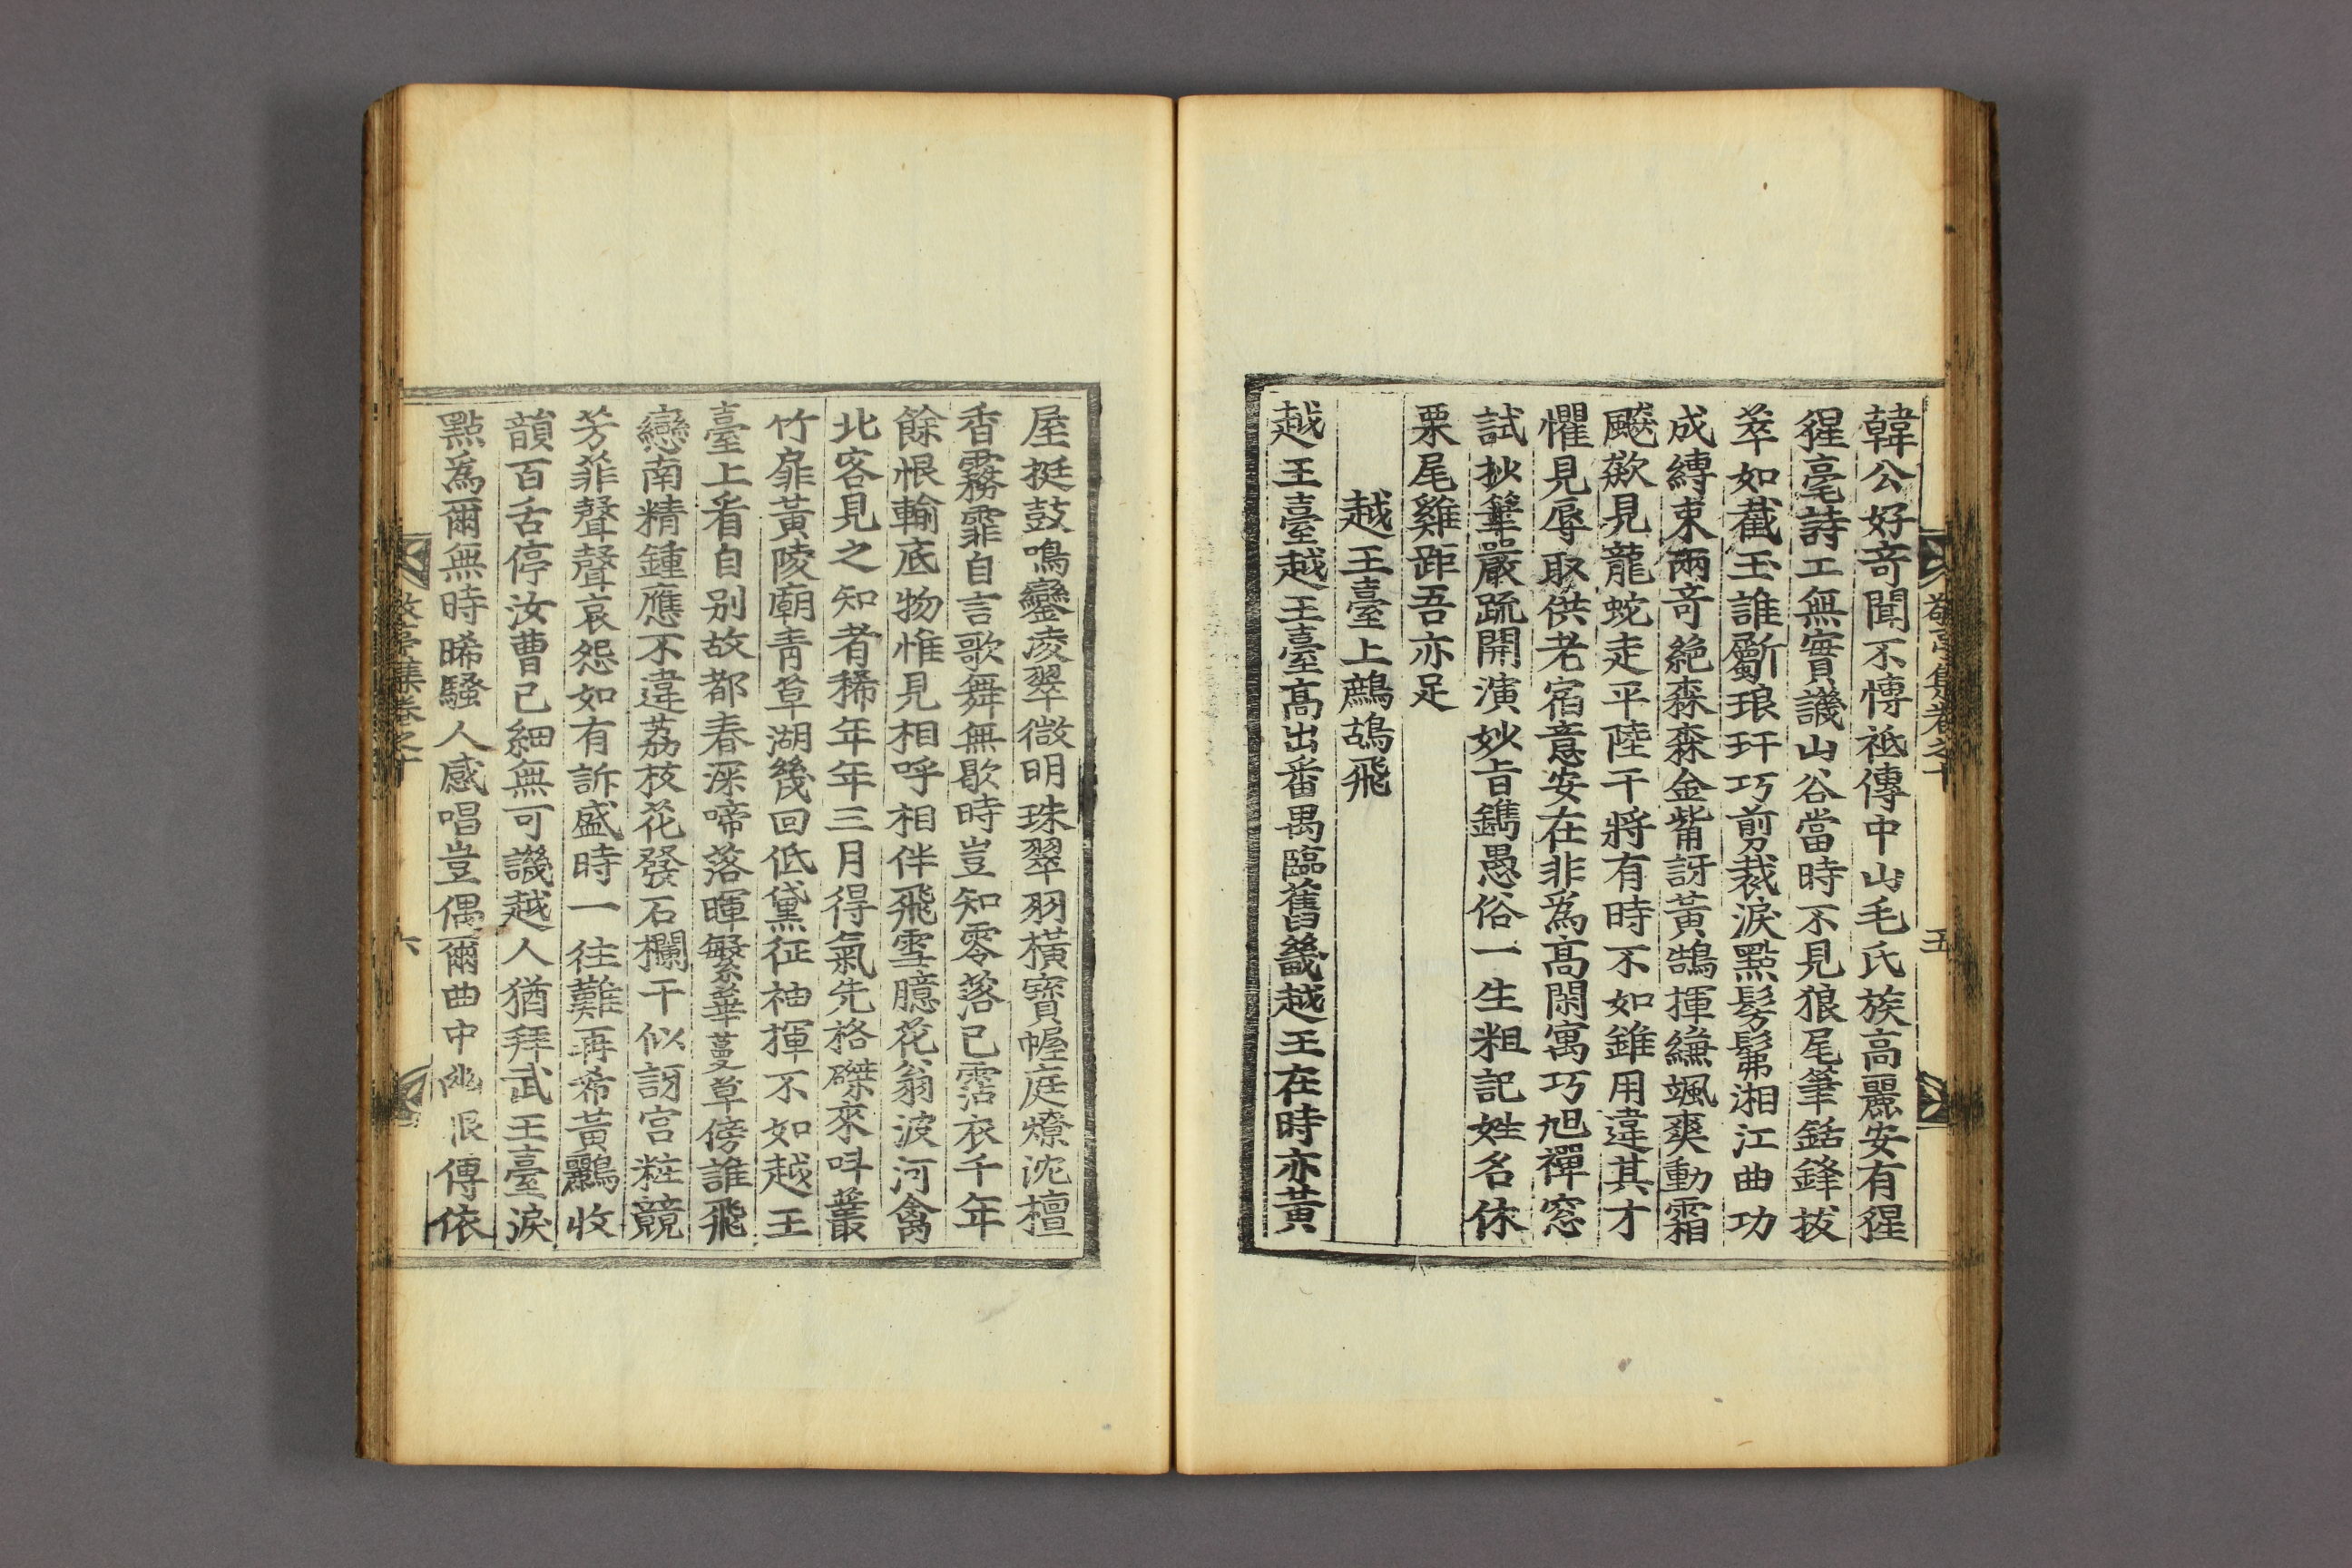 敬亭集卷之十
五
韓公好奇聞不愽祗傳中山毛氏族高麗安有猩
猩毫詩工無實譏山谷當時不見狼尾筆銛鋒拔
萃如截玉誰斸琅玕巧剪裁淚點髣髴湘江曲功
成縛束兩奇絶森森金觜訝黃鵠揮縑颯爽動霜
飈欻見龍蛇走平陸干將有時不如錐用違其才
懼見辱取供老宿意安在非爲高閑寓巧旭禪窓
試抄筆嚴䟽開演妙旨鐫愚俗一生粗記姓名休
栗尾雞距吾亦足
越王臺上鷓鴣飛
越王臺越王臺高出番禺臨舊畿越王在時亦黃
屋挺鼓鳴鑾凌翠微明珠翠羽橫寶幄庭燎沈檀
香霧霏自言歌舞無歇時豈知零落已霑衣千年
餘恨輸底物惟見相呼相伴飛雪臆花翁波河禽
北客見之知者稀年年三月得氣先格磔來呌叢
竹扉黃陵廟靑草湖幾回低黛征袖揮不如越王
臺上看自别故都春深啼落暉繁華蔓草傍誰飛
戀南精鍾應不違荔枝花發石欄干似訝宮粧競
芳菲聲聲哀怨如有訴盛時一往難再希黃鸝收
韻百舌停汝曹已細無可譏越人猶拜武王臺淚
點爲爾無時晞騷人感唱豈偶爾曲中幽恨傳依
敬亭集卷之十
六